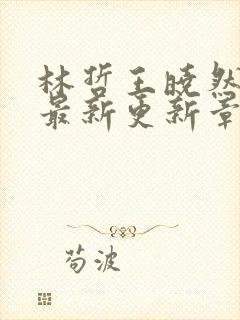 林哲王晓然
最新更新章
苟波